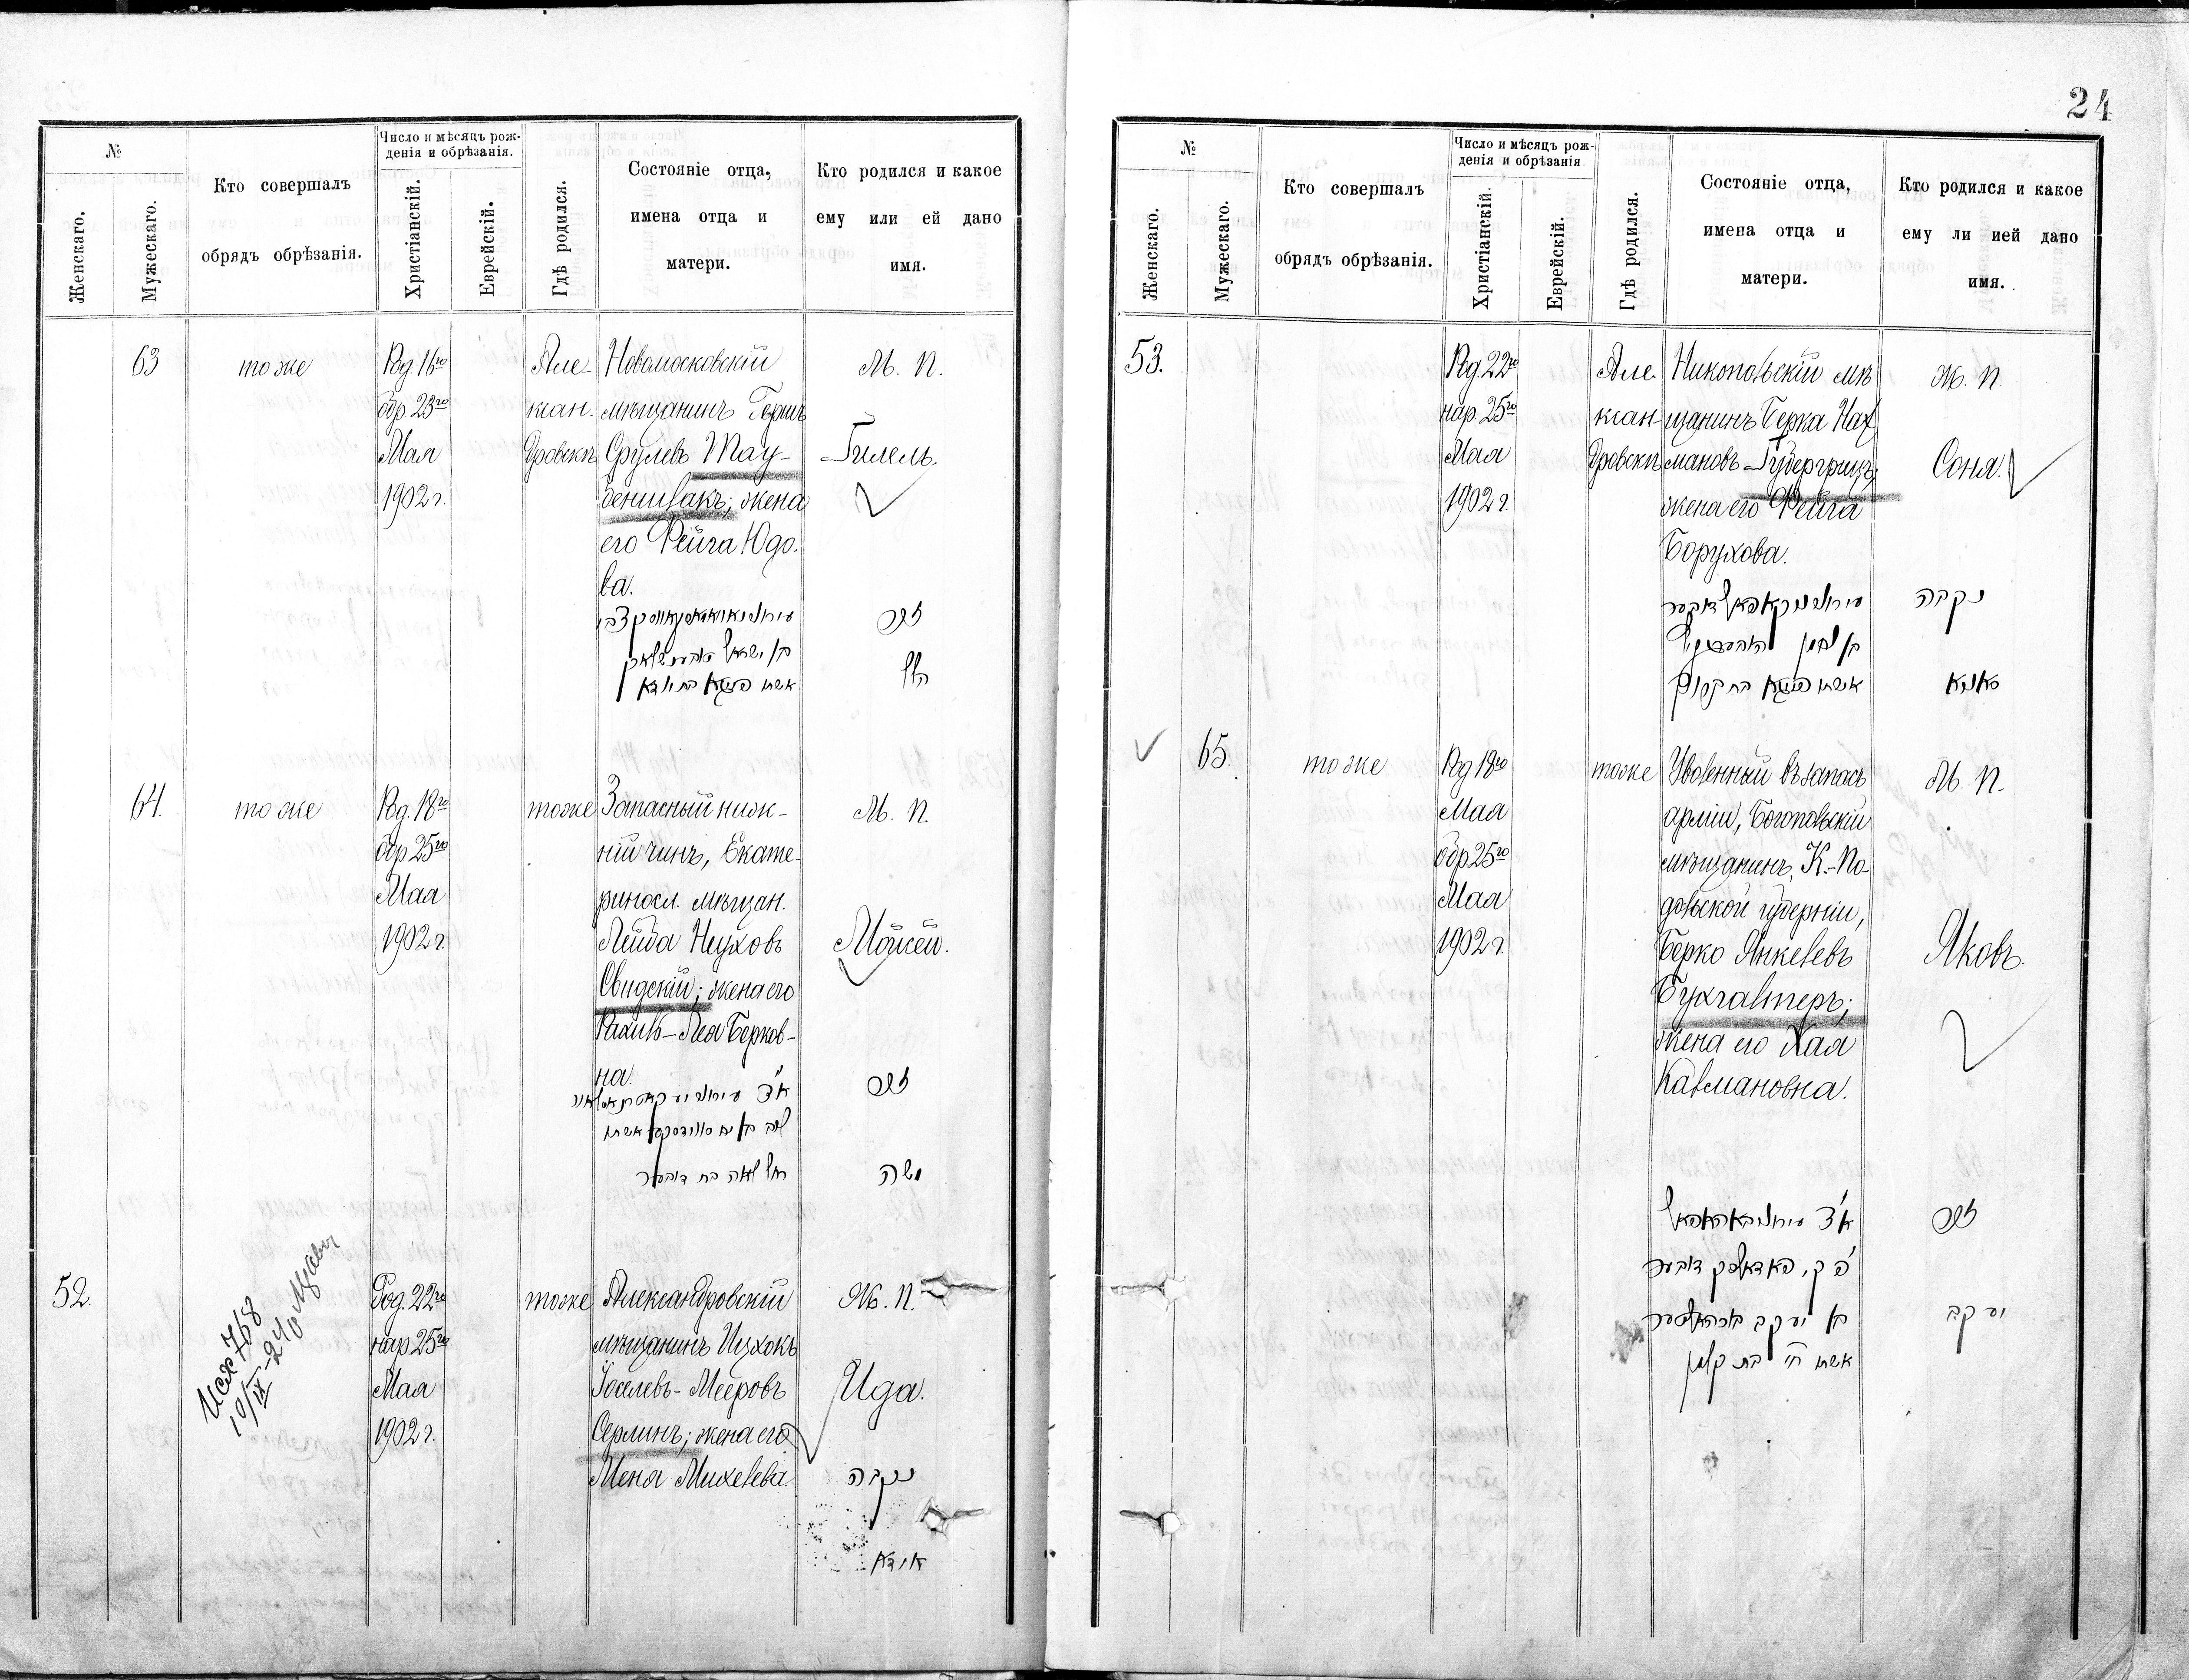 24
№
Женскаго.
Мужескаго.
Кто совершалъ
обрядъ обрѣзанія.
Число и мѣсяцъ рож-
денія и обрѣзанія.
Христіанскій.
Еврейскій.
Гдѣ родился.
Состояніе отца,
имена отца и
матери.
Кто родился и какое
ему или ей дано
имя.
63
тоже
Род. 16го
обр. 23го
Мая
1902 г.
Але-
ксан-
дровскъ
Новомосковскій
мѣщанинъ Гершъ
Срулевъ Тау-
беншлакъ; жена
его Фейга Юдо-
ва.
М. п.
Гилель.
זכר
הלל
64.
тоже
Род. 18го
обр 25го
Мая
1902 г.
тоже
Запасный ниж-
ній чинъ, Екате-
риносл. мѣщан.
Лейба Неуховъ
Свидскій; жена его
Рахиль-Лея Берков-
на.
М. п.
Мойсей.
זכר
רחל לאה בת דובער
משה
52.
Исх 758
10/IX-24
Род. 22го
нар 25го
Мая
1902 г.
тоже
Александровскій
мѣщанинъ Ицхокъ
Іоселевъ-Мееровъ
Серлинъ; жена его
Мена Михелева.
Ж. п.
Ида.
נקבה
אידא
№
Женскаго.
Мужескаго.
Кто совершалъ
обрядъ обрѣзанія.
Число и мѣсяцъ рож-
денія и обрѣзанія
Христіанскій.
Еврейскій.
Гдѣ родился.
Состояніе отца,
имена отца и
матери.
Кто родился и какое
ему ли ией дано
имя.
53.
Род. 22го
нар. 25го
Мая
1902 г.
Але-
ксан-
дровскъ
Никопольскій мѣ
щанинъ Берка Нах
мановъ Губергрицъ;
жена его Фейга
Борухова.
Ж. п.
Соня.
נקבה
סאניא
65.
тоже
Род 18го
Мая
обр 25го
Мая
1902 г.
тоже
Уволенный въ запасъ
арміи, Богопольскій
мѣщанинъ, К.-По-
дольской губерніи,
Берко Янкелевъ
Бухгалтеръ;
жена его Хая
Кальмановна.
М. п.
Яковъ.
זכר
אשתו חי' בת קלמן
יעקב